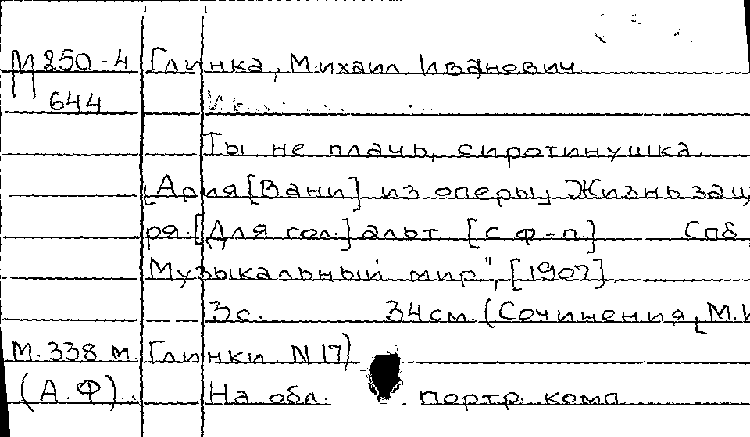 М 250-4 Глинка, Михаил Иванович
644
Ты не плачь, сиротинушка.
[Ария [Вани] из оперы Жизнь за ц
ря. [Для гол.] альт [с ф-п] Спб
Музыкальный мир", [1907]
3 с. 34 см (Сочинения М.И
М. 338 м Глинки N 17)
(А.Ф) На обл. портр. комп